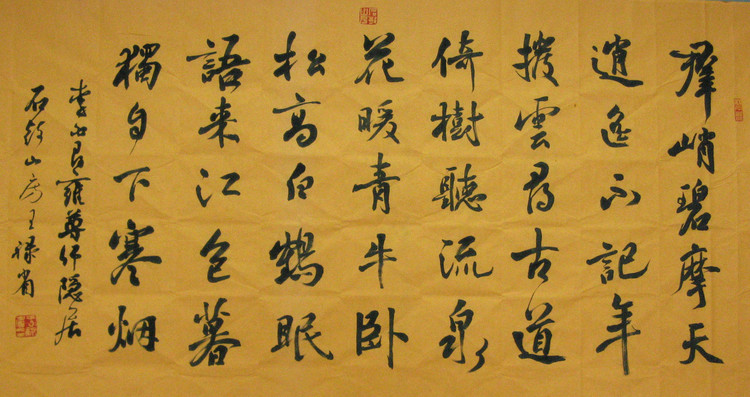 群峭碧摩天
逍遙不記年
撥雲尋古道
倚樹聽流泉
花暖青牛卧
松高白鶴眠
語来江色暮
獨自下寒烟
李白尋雍尊師隱居
山房王禄